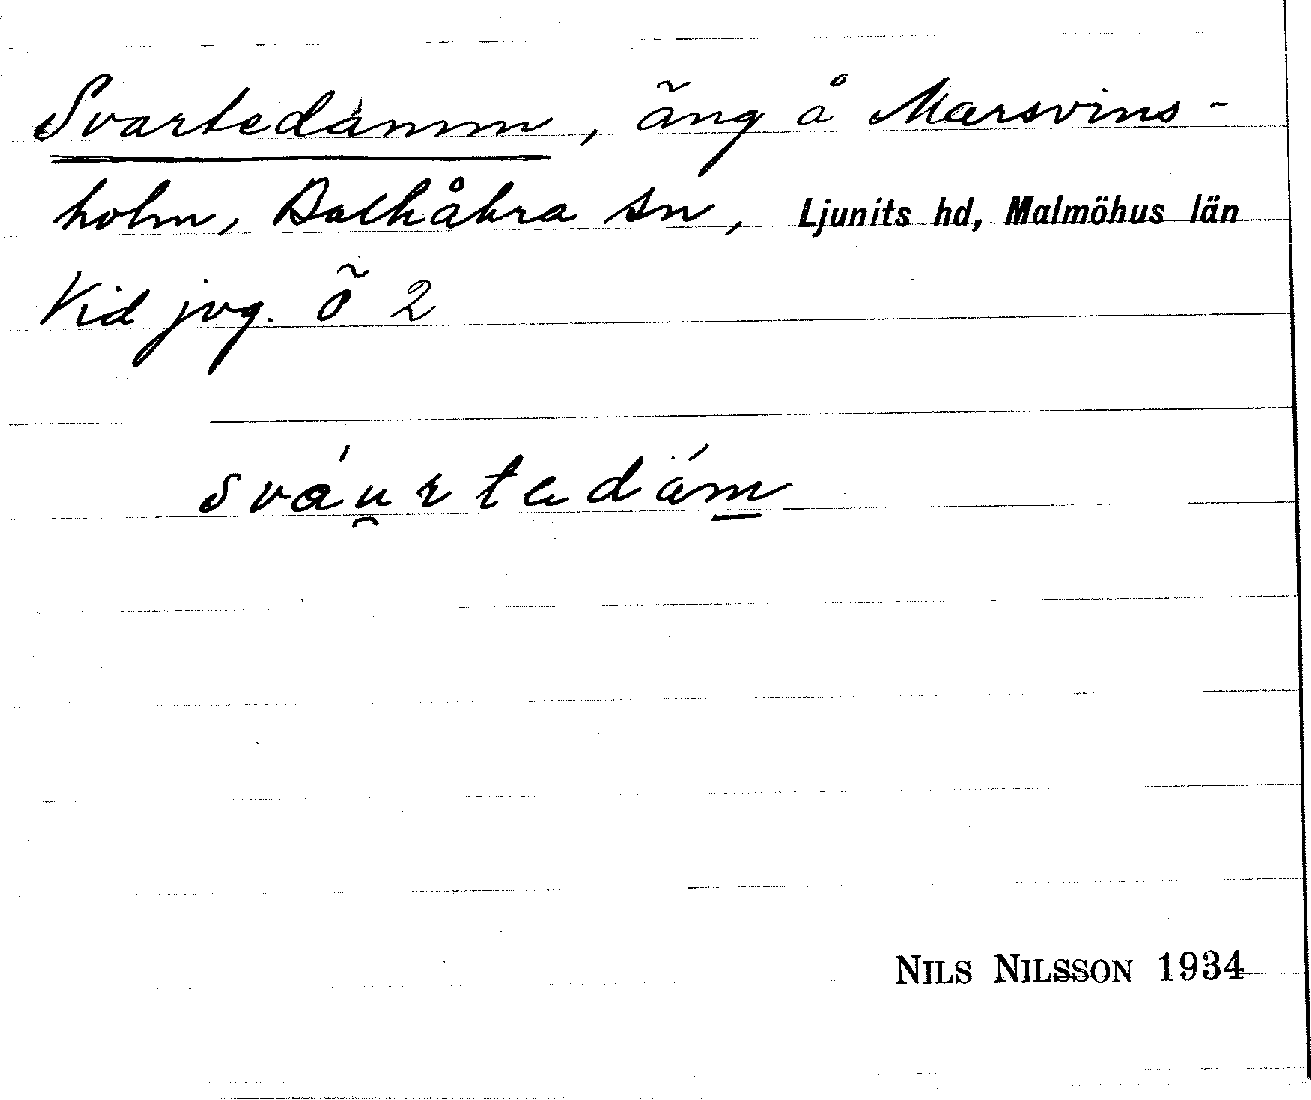 Svartedamm, äng å Marsvins-
holm, Balkåkra sn, Ljunits hd, Malmöhus län
Vid jvg. Ö 2
sváu̯rtedám̲
NILS NILSSON 1934